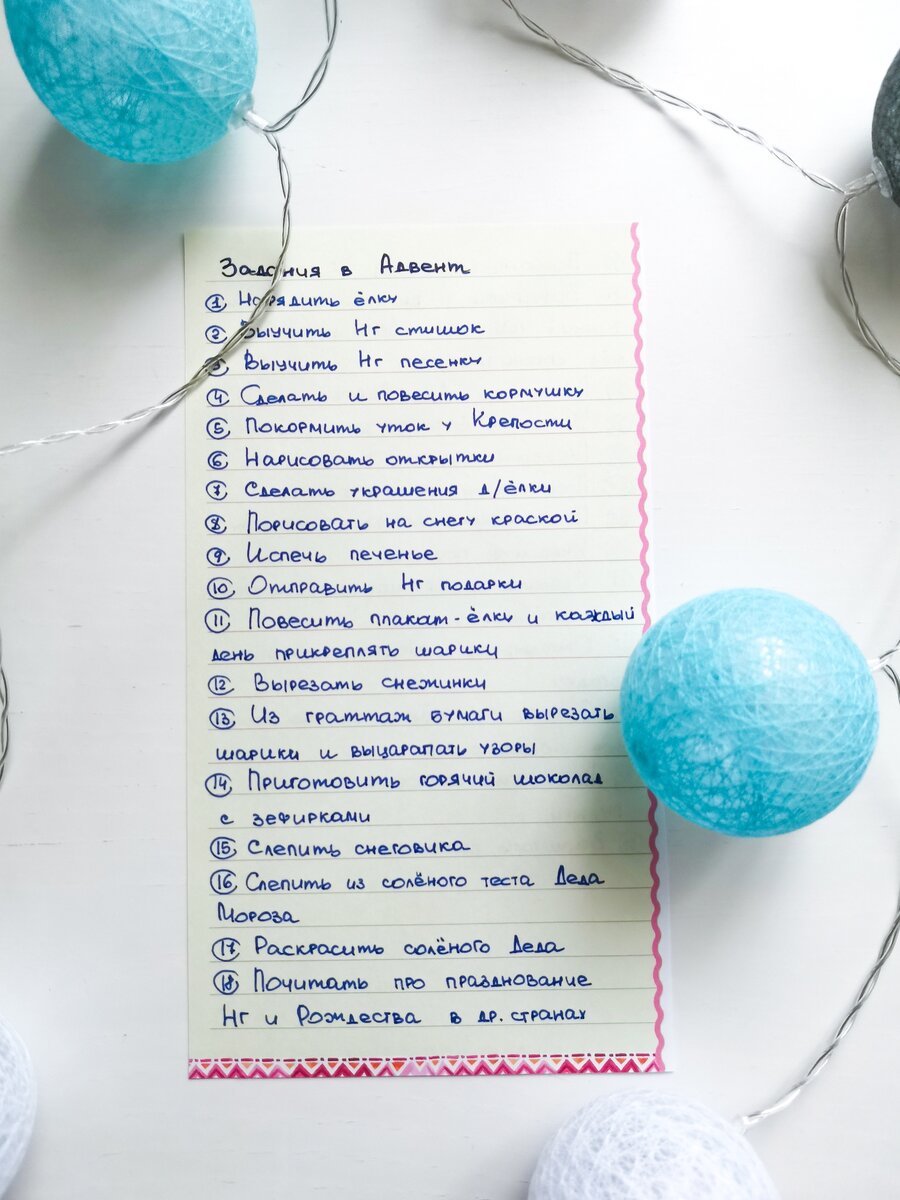 Задания в Адвент
① Нарядить ёлку
② Выучить Нг стишок
③ Выучить Нг песенку
④ Сделать и повесить кормушку
⑤ Покормить уток у Крепости
⑥ Нарисовать открытки
⑦ Сделать украшения д/ёлки
⑧ Порисовать на снегу краской
⑨ Испечь печенье
⑩ Отправить Нг подарки
⑪ Повесить плакат-ёлку и каждый
день прикреплять шарики
⑫ Вырезать снежинки
⑬ Из граттаж бумаги вырезать
шарики и выцарапать узоры
⑭ Приготовить горячий шоколад
с зефирками
⑮ Слепить снеговика
⑯ Слепить из солёного теста Деда
Мороза
⑰ Раскрасить солёного Деда
⑱ Почитать про празднование
Нг и Рождества в др. странах